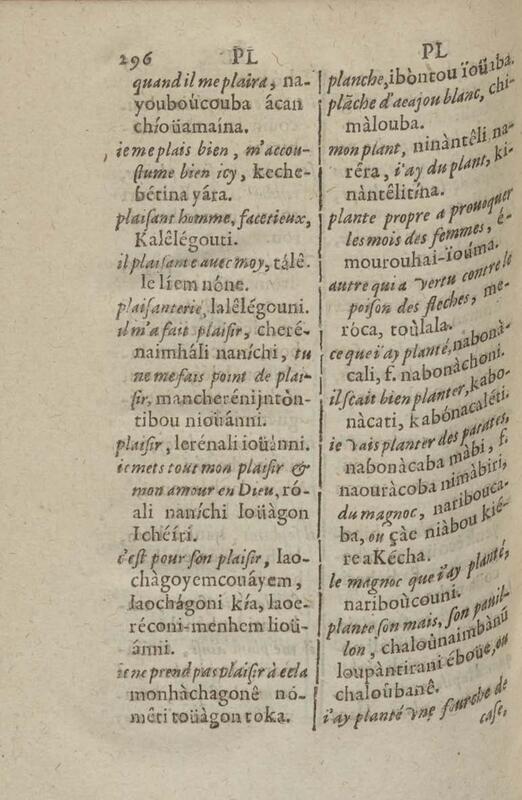 296 PL
quand il me plaira, na-
youboúcouba ácan
chíoüamaína.
ie me plais bien, m'accou-
ſtume bien icy, keche-
bétina yára.
plaiſant homme, facetieux,
Kalêlégouti.
il plaiſante auec moy, tálê-
le líem nóne.
plaiſanterie, lalêlégouni.
il m'a fait plaiſir, cheré-
naimháli naníchi, tu
ne me fais point de plai-
ſir, mancherénijntòn-
tibou nioüánni.
plaiſir, lerénali ioüánni.
ie mets tout mon plaiſir &
mon amour en Dieu, ró-
ali naníchi Ioüàgon
Ichéíri.
c'eſt pour ſon plaiſir, lao-
chàgoyemcouáyem,
laochágoni kía, laoe-
réconi-menhem lioü-
ánni.
ie ne prend pas plaiſir à cela
monhàchagonê nó-
mêti toüàgon toka.
PL
planche, ibòntou ïoüìba.
plãche d'acajou blanc, chi-
màlouba.
mon plant, ninàntêli na-
réra, i'ay du plant, ki-
nàntêlitína.
plante propre a prouoquer
les mois des femmes, é-
mourouhai-ïoúma.
autre qui a vertu contre le
poiſon des fleches, me-
róca, toùlala.
ce que i'ay planté, nabonà-
cali, f. nabonàchoni.
il ſcait bien planter, kabo-
nàcati, kabónacaléti.
ie vais planter des patates,
nabonàcaba màbi, f.
naouràcoba nimàbiri,
du magnoc, naribouca-
ba, ou çàe niàbou kié-
re aKécha.
le magnoc que i'ay planté,
nariboùcouni.
plante ſon mais, ſon pauil-
lon, chaloùnaimbànü
loupàntirani éboüe, ou
chaloùbanê.
i'ay planté vne fourche de
caſe,